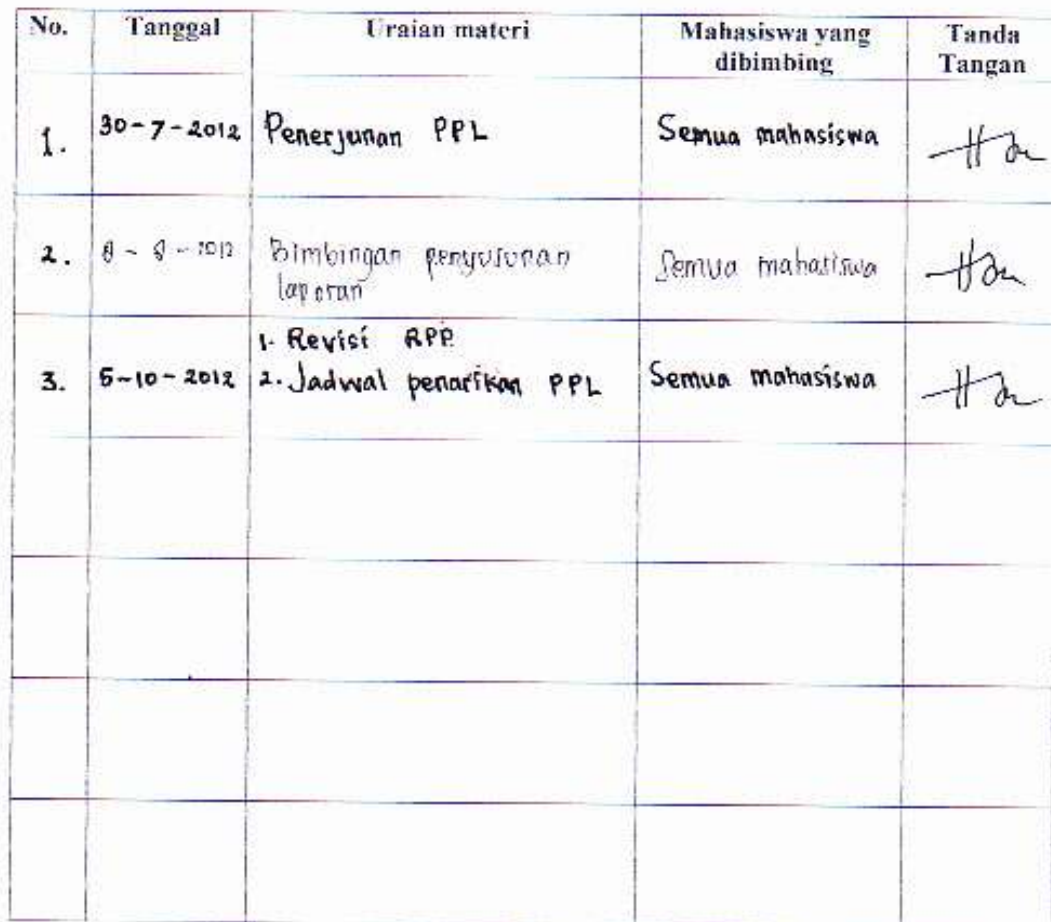 No. Tanggal Uraian materi Mahasiswa yang dibimbing Tanda Tangan
1. 30-7-2012 Penerjunan PPL Semua mahasiswa
2. Bimbingan penyusunan laporan Semua mahasiswa
3. 5-10-2012 1. Revisi RPP 2. Jadwal penarikan PPL Semua mahasiswa